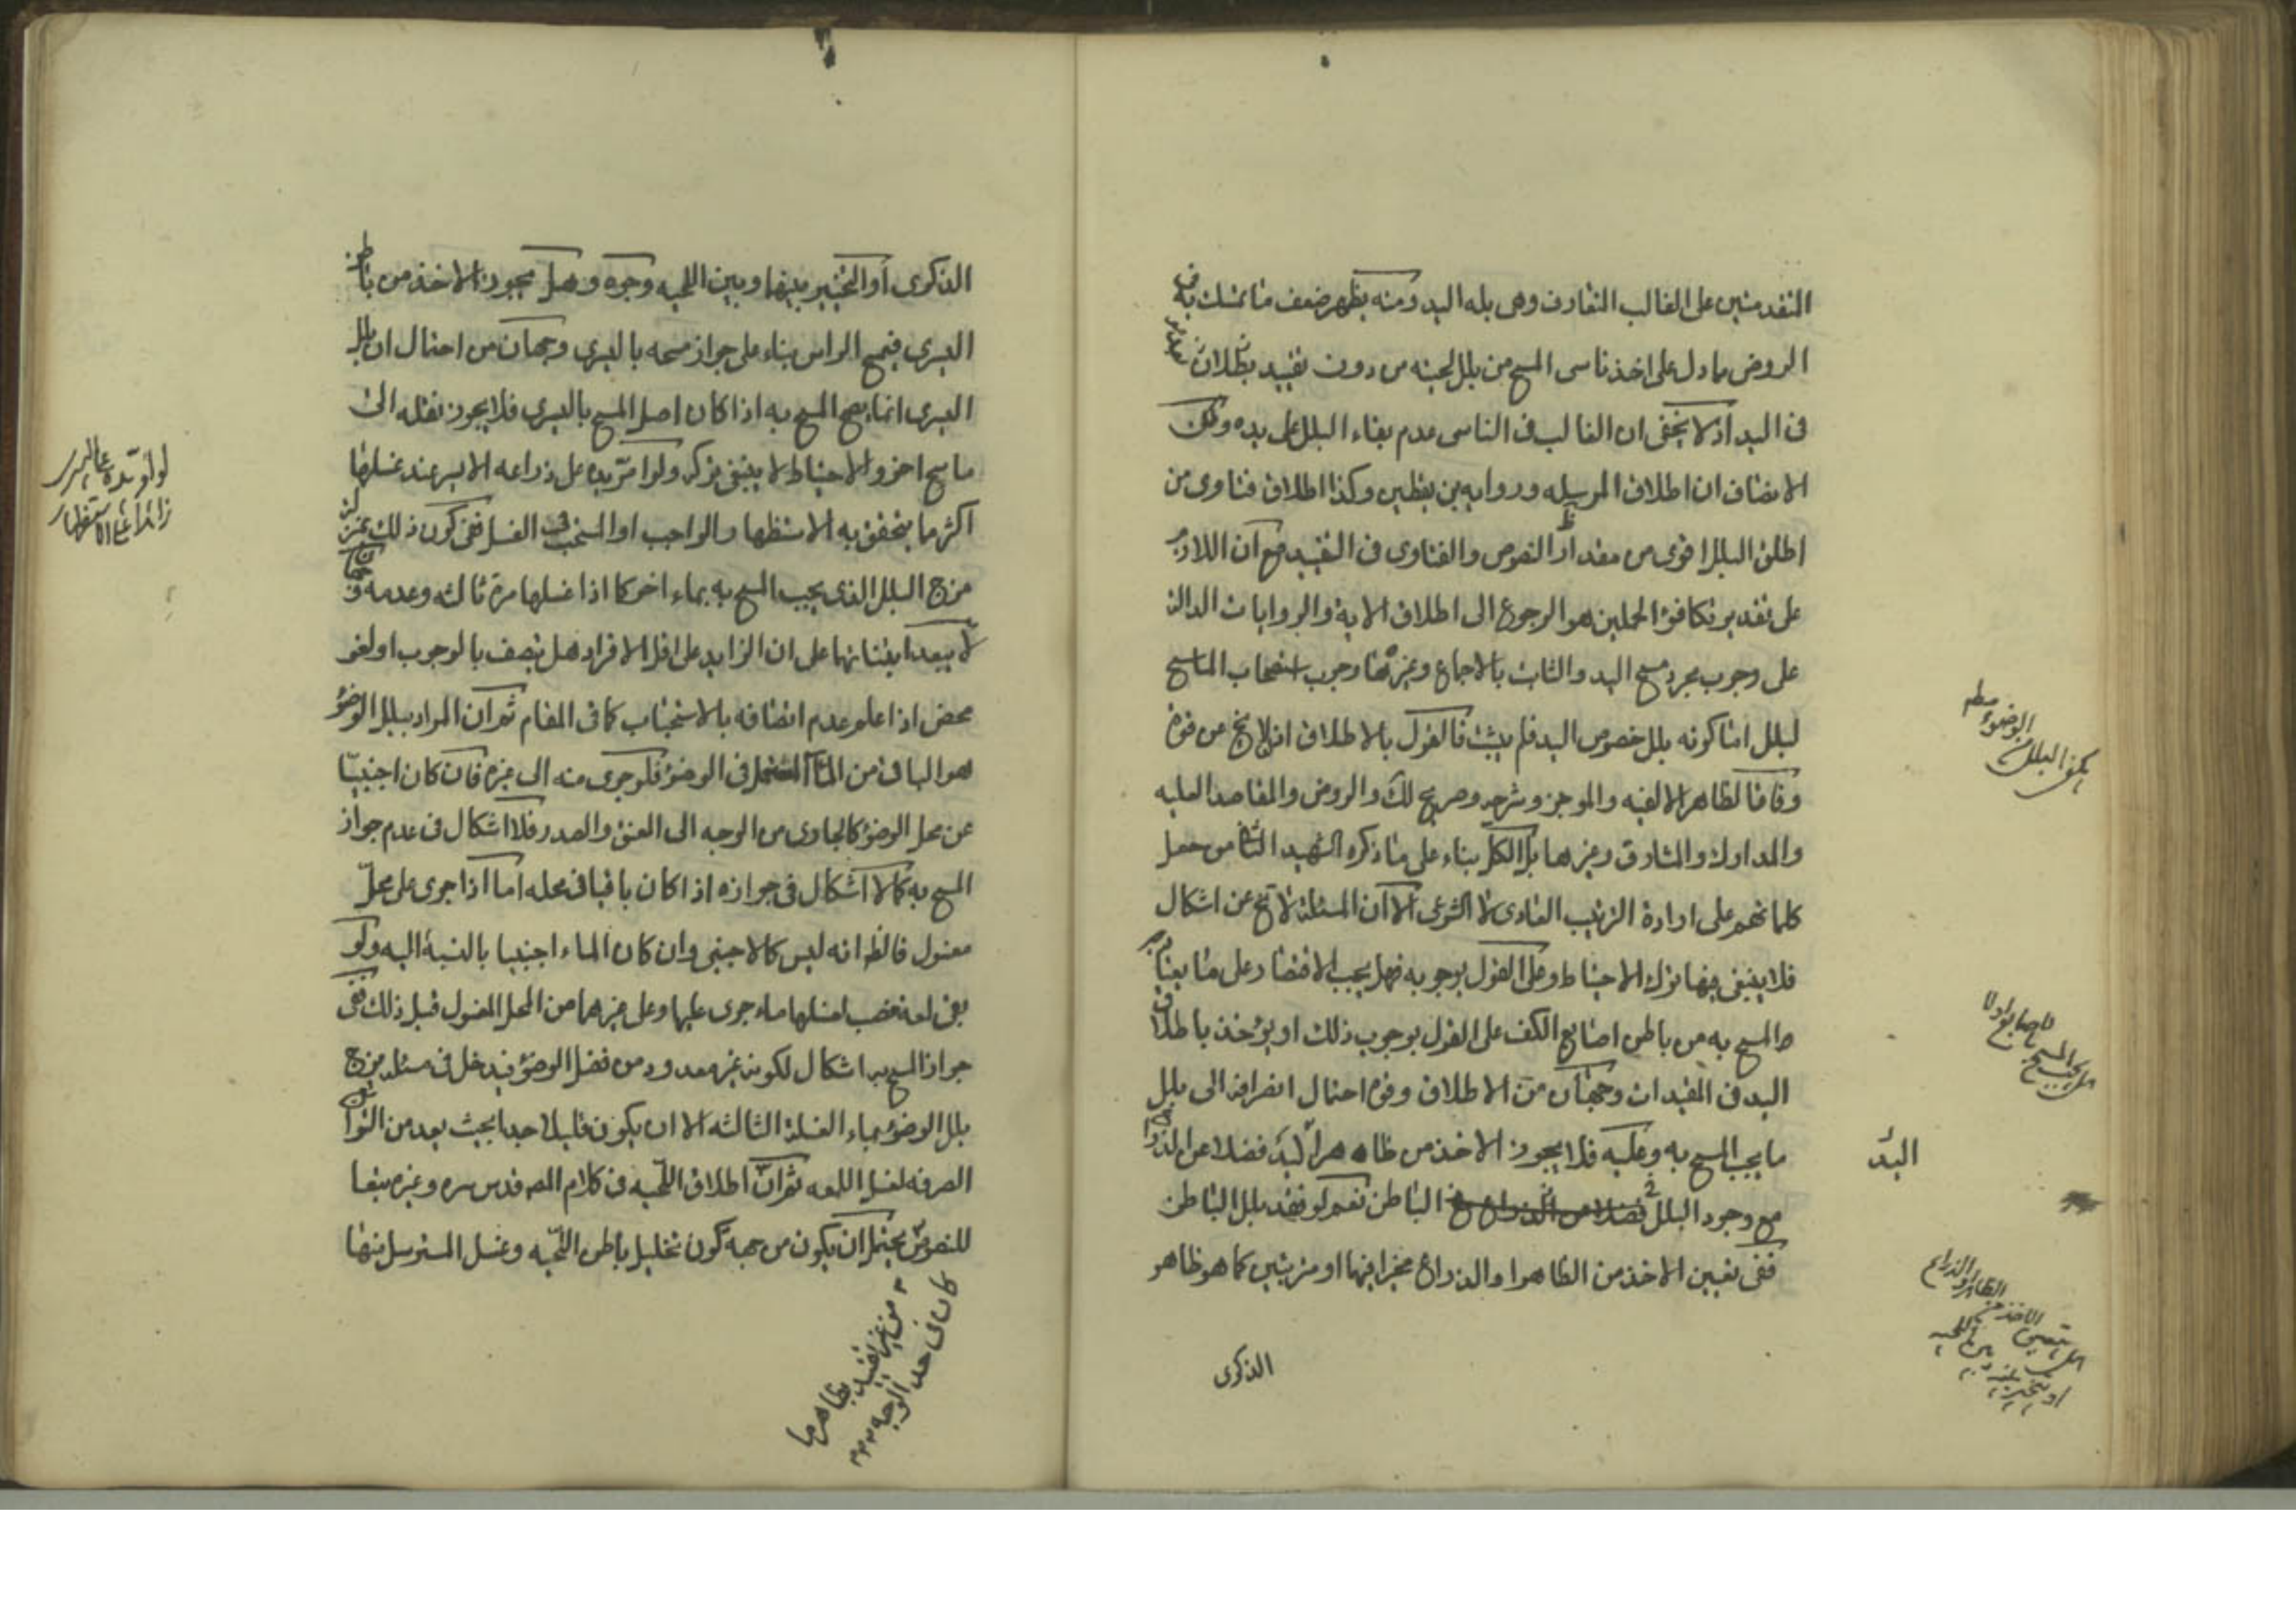 المتقدمتين على الغالب المتعارف وهى بله اليد ومنه يظهر ضعف ما تمسك به فى
الروض بما دل على اخذ ناسى المسح من بلل لحيته من دون تقييد بطلان
فى اليد اذ لا يخفى ان الغالب فى الناسى عدم بقاء البلل على يده ولكن
الانصاف ان اطلاق المرسله ورواية بن يقطين وكذا اطلاق فتاوى من
اطلق البلل اقوى من مقدار النصوص والفتاوى فى التقييد مع ان اللازم
على تقدير تكافؤ الحملين هو الرجوع الى اطلاق الاية والروايات الدالة
على وجوب مجرد مسح اليد والثابت بالاجماع وغيره هنا وجوب استصحاب الماسح
لبلل اما كونه بلل خصوص اليد فلم يثبت فالقول بالاطلاق لا يخ عن قوة
وفاقا لظاهر الالفيه والموجز وشرحه وصريح لك والروض والمقاصد العليه
والمدارك والمشارق وغيرها بل الكل بناء على ما ذكره الشهيد الثانى من حمل
كلماتهم على ارادة الترتيب العادى لا الشرعى الا ان المسئلة لا تخ عن اشكال
فلا ينبغى فيها ترك الاحتياط وعلى القول بوجوبه فهل يجب الاقتصار على ما يعتاد
المسح به من باطن اصابع الكف على القول بوجوب ذلك او يؤخذ باطلاق
اليد فى المقيدات وجهان من الاطلاق وقوة احتمال انصرافه الى بلل
ما يجب المسح به وعليه فلا يجوز الاخذ من ظاهر اليد فضلا عن الذراع
مع وجود البلل فى الباطن نعم لو فقد بلل الباطن
ففى تعيين الاخذ من الظاهر او الذراع مخيرا فيها او مرتبين كما هو ظاهر
الذكرى
يكفى البلل من
الوضوء مطلقا
هل يجب المسح
بالاصابع اولا
اليد
هل يتعين
الاخذ من
الظاهر والذراع
او يتخير بينه وبين اللحيه
الذكرى او التخيير بينها وبين اللحيه وجوه وهل يجوز الاخذ من باطن
اليسرى فيمسح الراس بناء على جواز مسحه باليسرى وجهان من احتمال ان بلل
اليسرى انما يصح المسح به اذا كان اصل المسح باليسرى فلا يجوز نقله الى
ماسح اخر والاحتياط لا ينبغى تركه ولو امرّ يده على ذراعه الايسر عند غسلها
اكثر ما يتحقق به الاستظهار الواجب او المستحب فى الغسل ففى كون ذلك من
مزج البلل الذى يجب المسح به بماء اخر كما اذا غسلها مرة ثالثه وعدمه وجهان
لا يبعد ابتنائهما على ان الزايد على اقل الافراد هل يتصف بالوجوب او لغو
محض اذا علم عدم اتصافه بالاستحباب كما فى المقام ثم ان المراد ببلل الوضوء
هو الباقى من الماء المستعمل فى الوضوء فلو جرى منه الى غيره فان كان اجنبيّا
عن محل الوضوء كالجارى من الوجه الى العنق والصدر فلا اشكال فى عدم جواز
المسح به كما لا اشكال فى جوازه اذا كان باقيا فى محله اما اذا جرى على محلّ
مغسول فالظ انه ليس كالاجنبى وان كان الماء اجنبيا بالنسبة اليه ولو
بقى لمعة فصب لغسلها ماء جرى عليها وعلى غيرها من المحل المغسول قبل ذلك ففى
جواز المسح به اشكال لكونه غير معدود من فضل الوضوء فيدخل فى مسئلة مزج
بلل الوضوء بماء الغسلة الثالثه الا ان يكون قليلا جدا بحيث يعد من التوابع
العرفية لغسل اللمعه ثم ان اطلاق اللّحيه فى كلام المص قدس سره وغيره تبعا
للنصوص يحتمل ان يكون من جهة كون تخليل باطن اللّحيه وغسل المسترسل منها
من غير تقييد بظاهرها
كان فى حد الوجه
لو امرّ يده على اليسرى
زائدا على الاستظهار